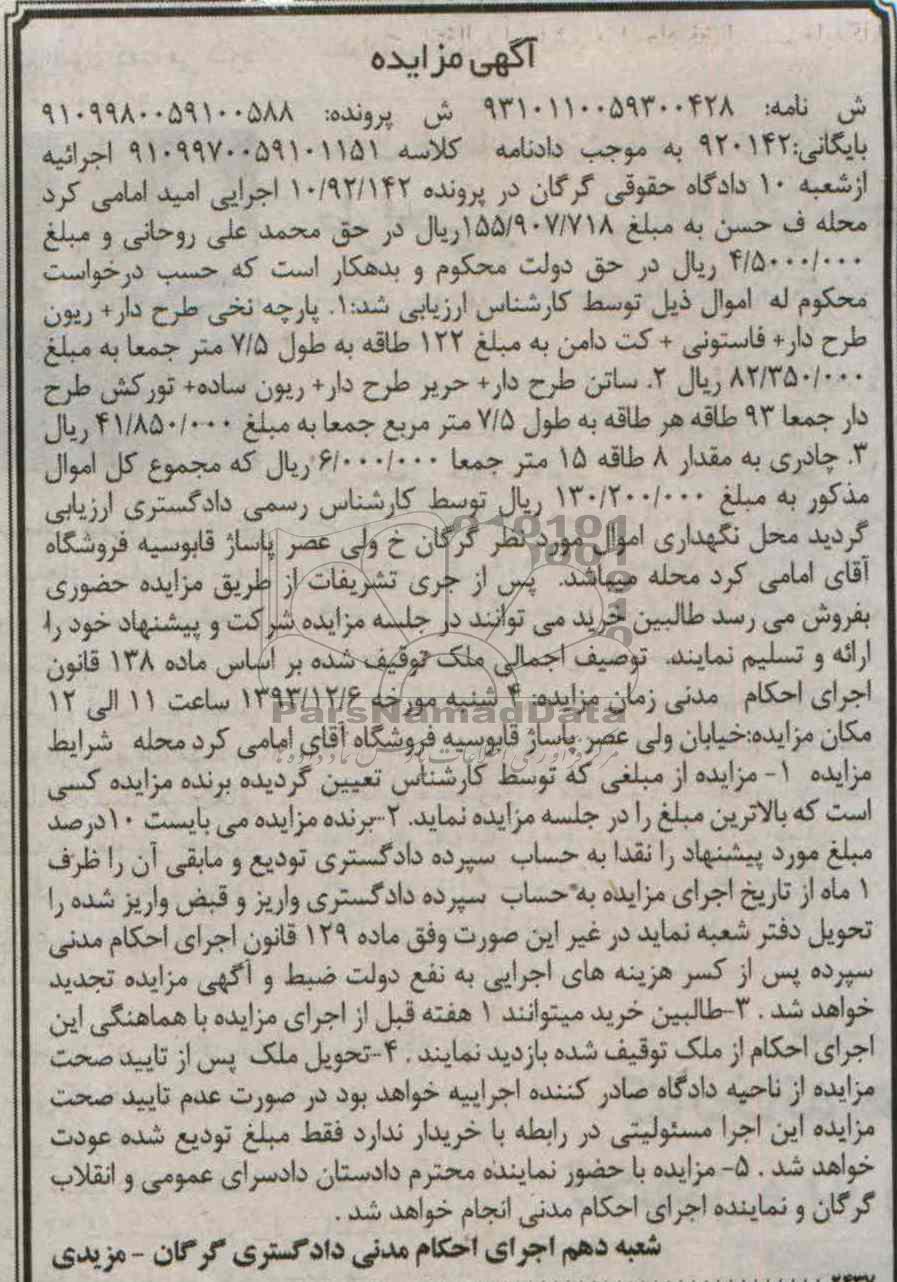 آگهی مزایده
ش نامه: ۹۳۱۰۱۱۰۰۵۹۳۰۰۴۲۸ ش پرونده: ۹۱۰۹۹۸۰۰۵۹۱۰۰۵۸۸
بایگانی:۹۲۰۱۴۲ به موجب دادنامه کلاسه ۹۱۰۹۹۷۰۰۵۹۱۰۱۱۵۱ اجرائیه
ازشعبه ۱۰ دادگاه حقوقی گرگان در پرونده ۱۰/۹۲/۱۴۲ اجرایی امید امامی کرد
محله ف حسن به مبلغ ۱۵۵/۹۰۷/۷۱۸ریال در حق محمد علی روحانی و مبلغ
۴/۵۰۰۰/۰۰۰ ریال در حق دولت محکوم و بدهکار است که حسب درخواست
محکوم له اموال ذیل توسط کارشناس ارزیابی شد:۱. پارچه نخی طرح دار+ ریون
طرح دار+ فاستونی + کت دامن به مبلغ ۱۲۲ طاقه به طول ۷/۵ متر جمعا به مبلغ
۸۲/۳۵۰/۰۰۰ ریال ۲. ساتن طرح دار+ حریر طرح دار+ ریون ساده+ تورکش طرح
دار جمعا ۹۳ طاقه هر طاقه به طول ۷/۵ متر مربع جمعا به مبلغ ۴۱/۸۵۰/۰۰۰ ریال
۳. چادری به مقدار ۸ طاقه ۱۵ متر جمعا ۶/۰۰۰/۰۰۰ ریال که مجموع کل اموال
مذکور به مبلغ ۱۳۰/۲۰۰/۰۰۰ ریال توسط کارشناس رسمی دادگستری ارزیابی
گردید محل نگهداری اموال مورد نظر گرگان خ ولی عصر پاساژ قابوسیه فروشگاه
آقای امامی کرد محله میباشد. پس از جری تشریفات از طریق مزایده حضوری
بفروش می رسد طالبین خرید می توانند در جلسه مزایده شرکت و پیشنهاد خود را
ارائه و تسلیم نمایند. توصیف اجمالی ملک توقیف شده بر اساس ماده ۱۳۸ قانون
اجرای احکام مدنی زمان مزایده: ۴ شنبه مورخه ۱۳۹۳/۱۲/۶ ساعت ۱۱ الی ۱۲
ParsNamadData
مکان مزایده:خیابان ولی عصر پاساژ قابوسیه فروشگاه آقای امامی کرد محله شرایط
مزایده ۱- مزایده از مبلغی که توسط کارشناس تعیین گردیده برنده مزایده کسی
است که بالاترین مبلغ را در جلسه مزایده نماید. ۲-برنده مزایده می بایست ۱۰درصد
مبلغ مورد پیشنهاد را نقدا به حساب سپرده دادگستری تودیع و مابقی آن را ظرف
۱ ماه از تاریخ اجرای مزایده به حساب سپرده دادگستری واریز و قبض واریز شده را
تحویل دفتر شعبه نماید در غیر این صورت وفق ماده ۱۲۹ قانون اجرای احکام مدنی
سپرده پس از کسر هزینه های اجرایی به نفع دولت ضبط و آگهی مزایده تجدید
خواهد شد . ۳-طالبین خرید میتوانند ۱ هفته قبل از اجرای مزایده با هماهنگی این
اجرای احکام از ملک توقیف شده بازدید نمایند . ۴-تحویل ملک پس از تایید صحت
مزایده از ناحیه دادگاه صادر کننده اجراییه خواهد بود در صورت عدم تایید صحت
مزایده این اجرا مسئولیتی در رابطه با خریدار ندارد فقط مبلغ تودیع شده عودت
خواهد شد . ۵- مزایده با حضور نماینده محترم دادستان دادسرای عمومی و انقلاب
گرگان و نماینده اجرای احکام مدنی انجام خواهد شد .
شعبه دهم اجرای احکام مدنی دادگستری گرگان - مزیدی